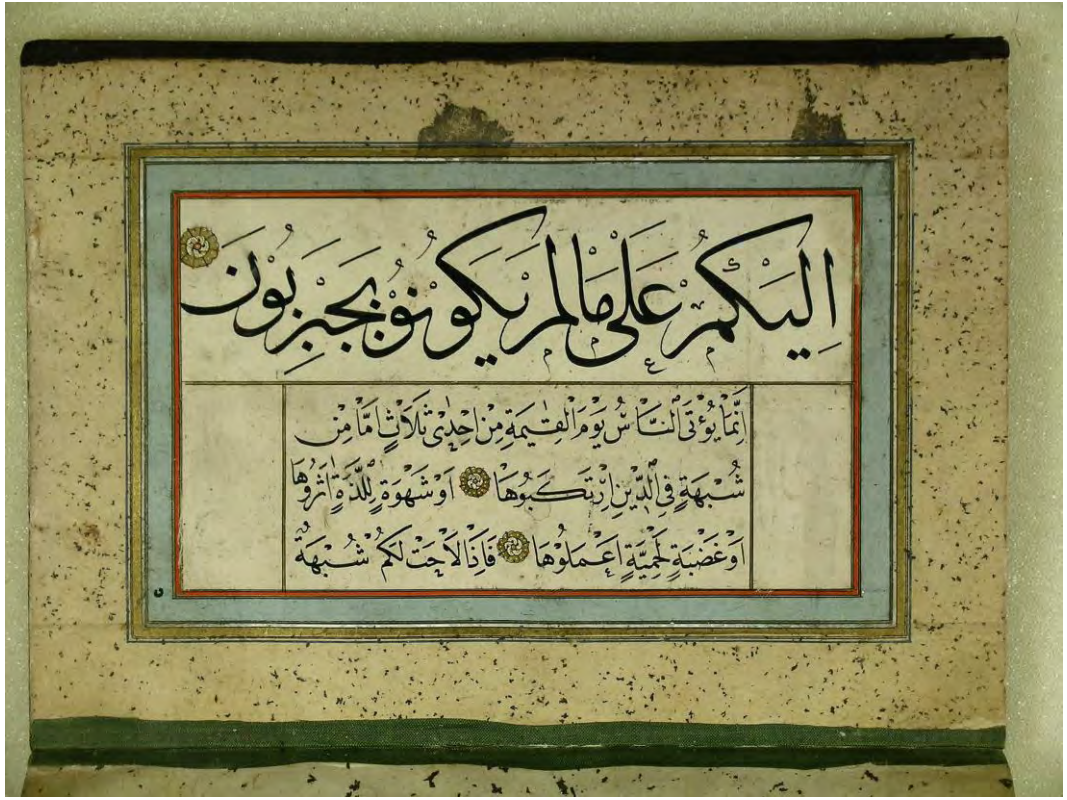 اِلَيْكُمْ عَلٰى مَا لَمْ يَكُونُوُا يُجْبَرُونَ
اِنَّمَا يُؤْتَى النَّاسُ يَوْمَ الْقِيٰمَةِ مِنْ اِحْدٰى ثَلَاثٍ اِمَّا مِنْ
شُبْهَةٍ فِى الدّٖينِ اِرْتَكَبُوهَا اَوْ شَهْوَةٍ لِلَّذَّةٍ اٰثَرُوهَا
اَوْ غَضْبَةٍ لِحَمِيَّةٍ اَعْمَلُوهَا فَاِذَا لَاحَتْ لَكُمْ شُبْهَةٌ